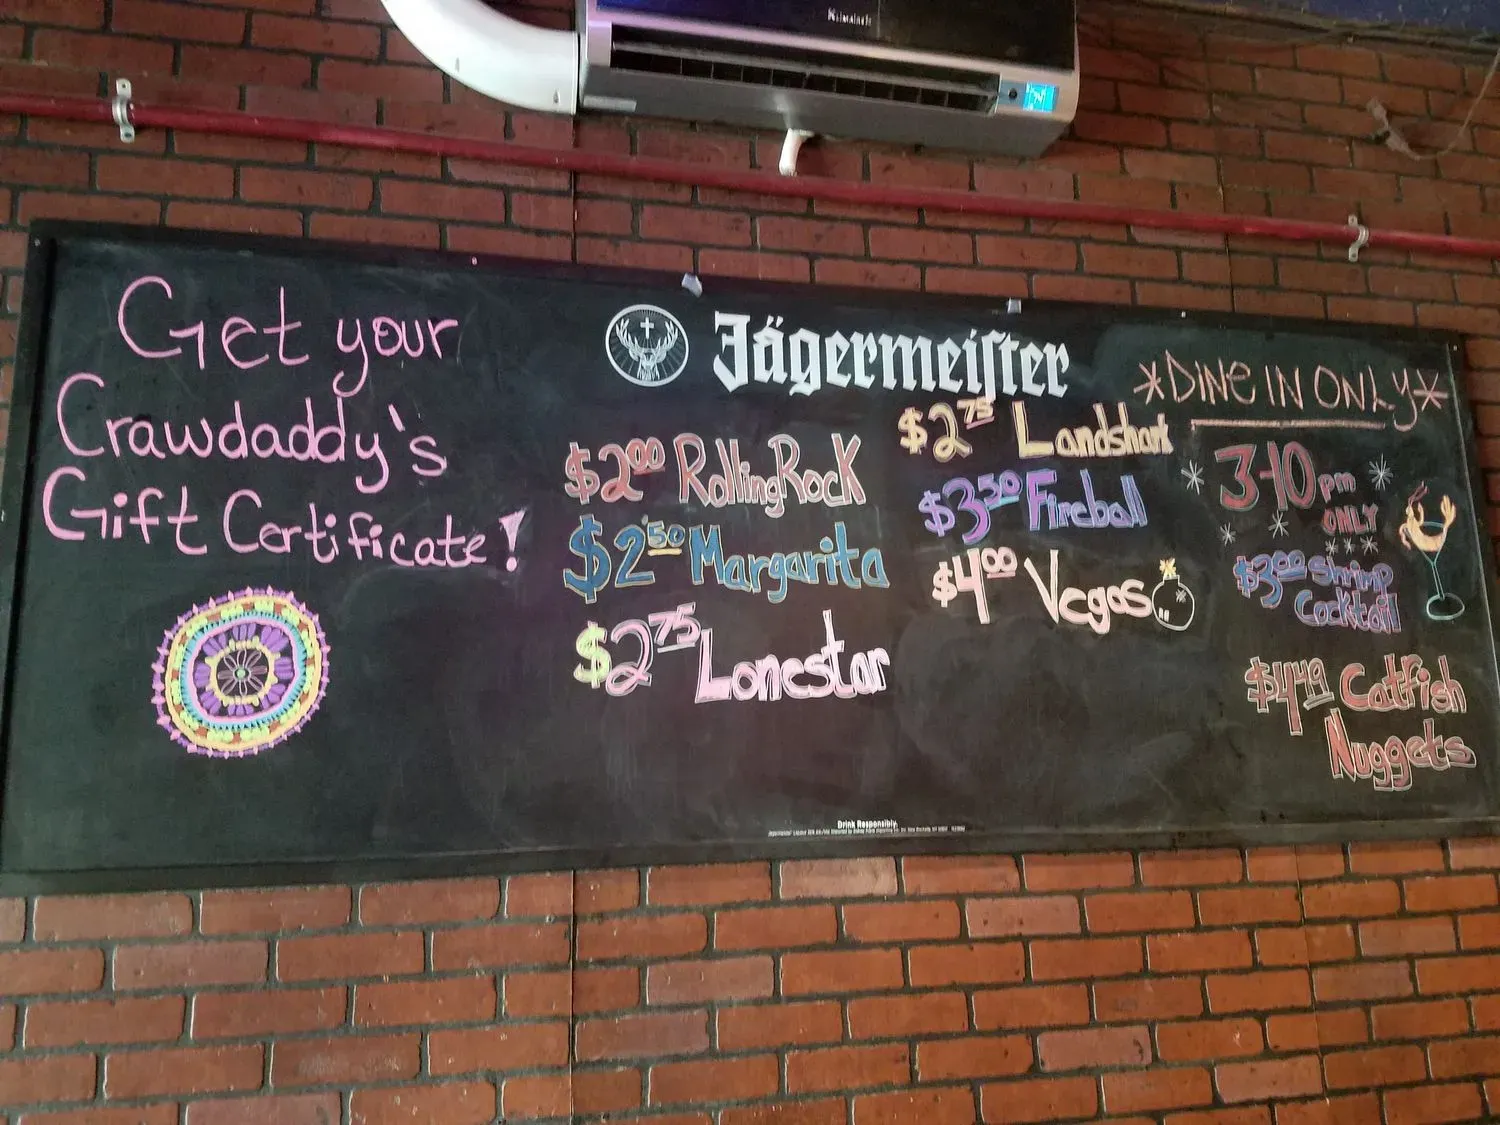 Get your
Crawdaddy's
Gift Certificate!
Jägermeister
$2.00 Rolling Rock
$2.50 Margarita
$2.75 Lonestar
$2.75 Landshark
$3.50 Fireball
$4.00 Vegas
*DINE IN ONLY*
3-10 pm
ONLY
$3.00 Shrimp
Cocktail
$4.49 Catfish
Nuggets
Drink Responsibly.